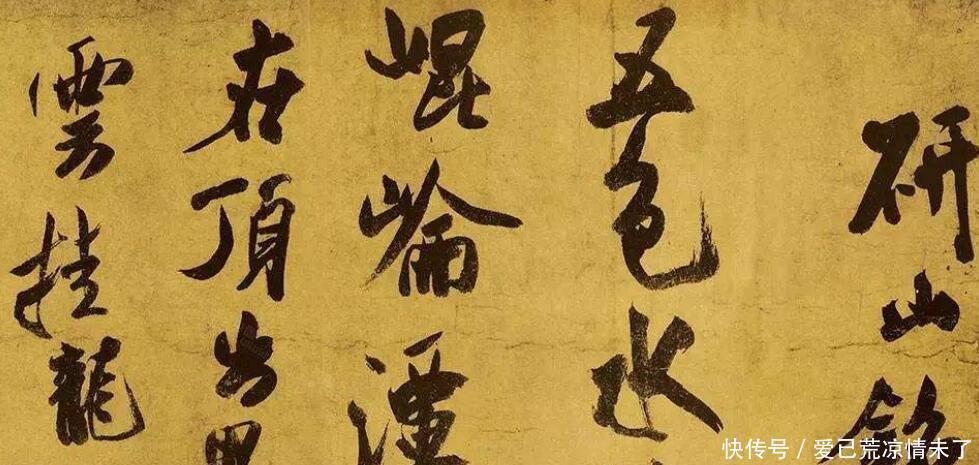 研山銘
五色水
崐崘潭
在頂出
雲挂龍
快传号 / 爱已荒凉情未了